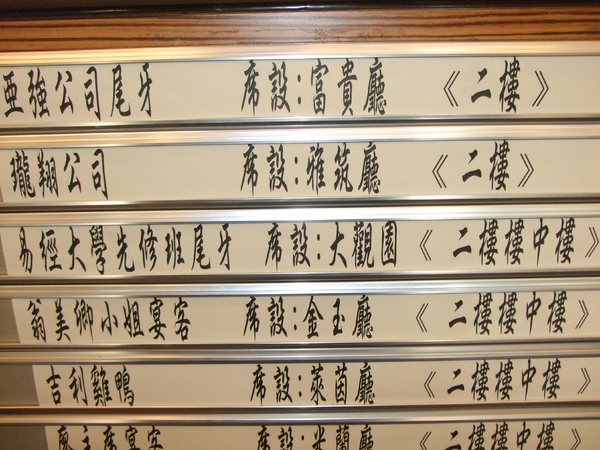 亞強公司尾牙 席設:富貴廳 《二樓》
瓏翔公司 席設:雅筑廳 《二樓》
易經大學先修班尾牙 席設:大觀園 《二樓樓中樓》
翁美卿小姐宴客 席設:金玉廳 《二樓樓中樓》
吉利雞鴨 席設:萊茵廳 《二樓樓中樓》
廖主席宴客 席設:米蘭廳 《二樓樓中樓》